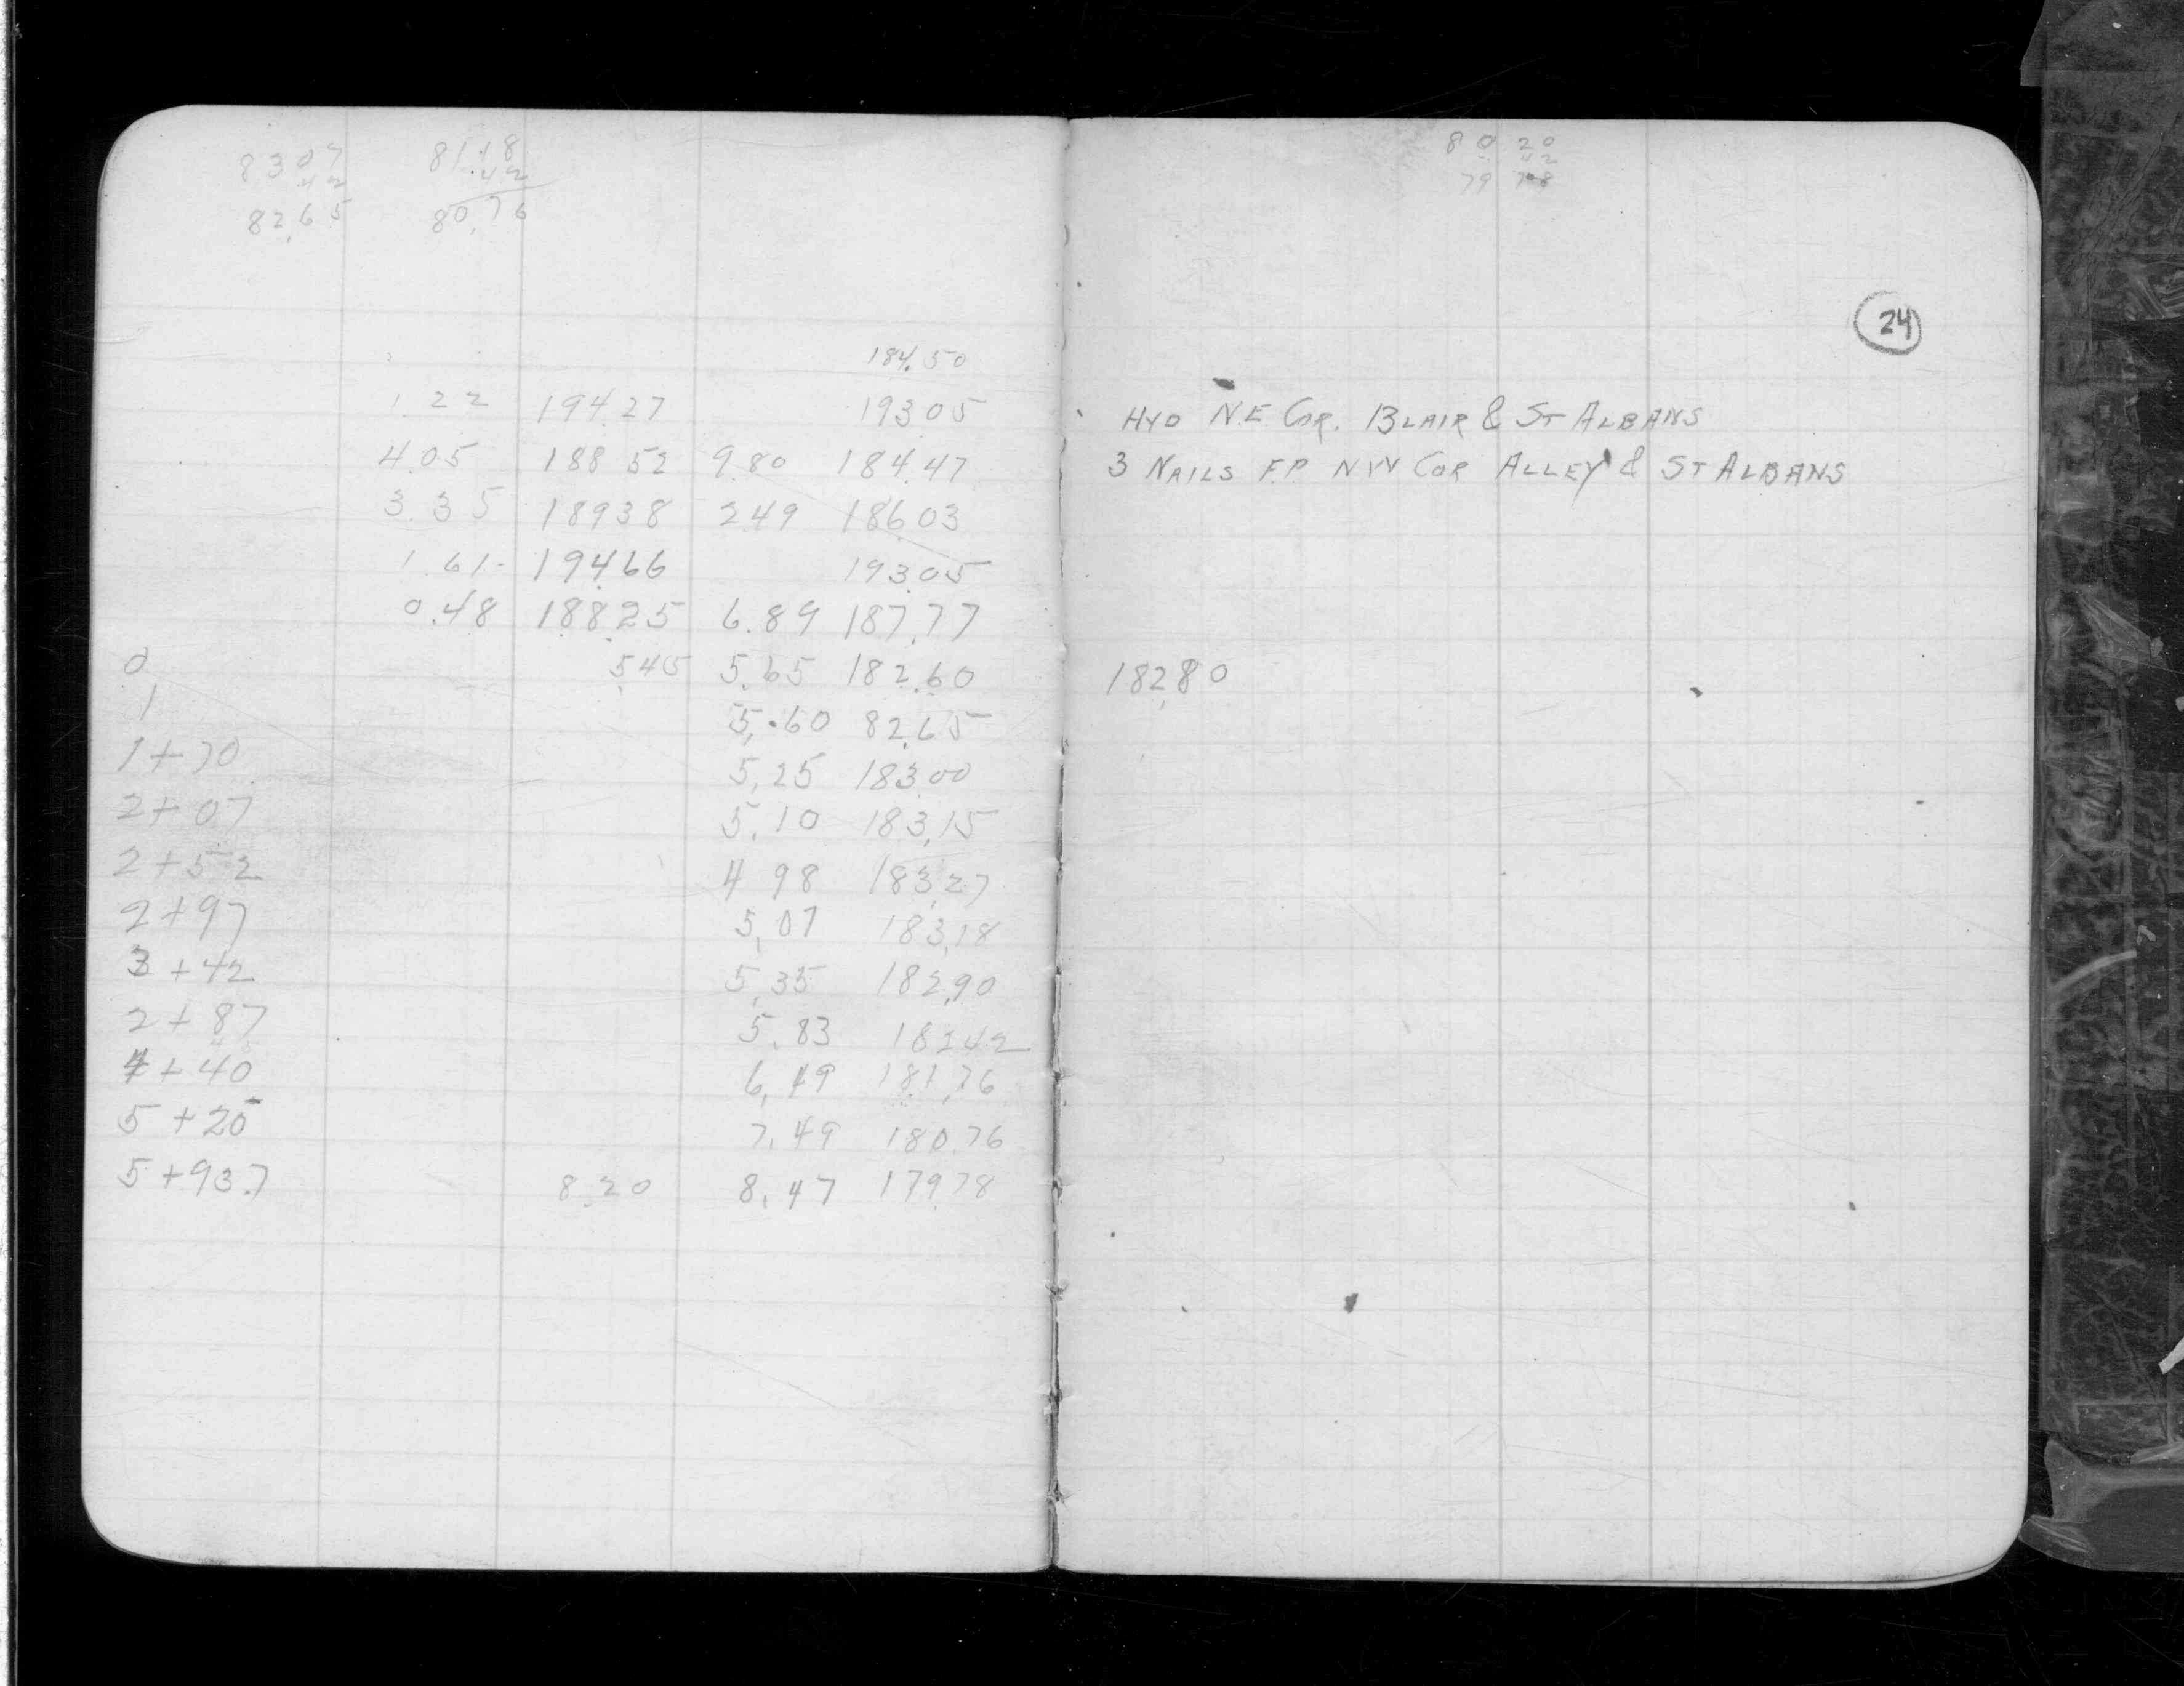 8307 8118
.42 .42
82.65 80.76
184.50
1.22 194.27 193.05
4.05 188.52 9.80 184.47
3.35 189.38 2.49 186.03
1.61 194.66 193.05
0.48 188.25 6.89 187.77
0 5.45 5.65 182.60
1 5.60 82.65
1+70 5.25 183.00
2+07 5.10 183.15
2+52 4 98 183.27
2+97 5.07 183.18
3+42 5.35 182.90
2+87 5.83 182.42
4+40 6.49 181.76
5+20 7.49 180.76
5+93.7 8.20 8.47 179.78
80 20
42
79 78
24
HYD N.E. COR. BLAIR & ST ALBANS
3 NAILS F.P NW COR ALLEY & ST ALBANS
182.80